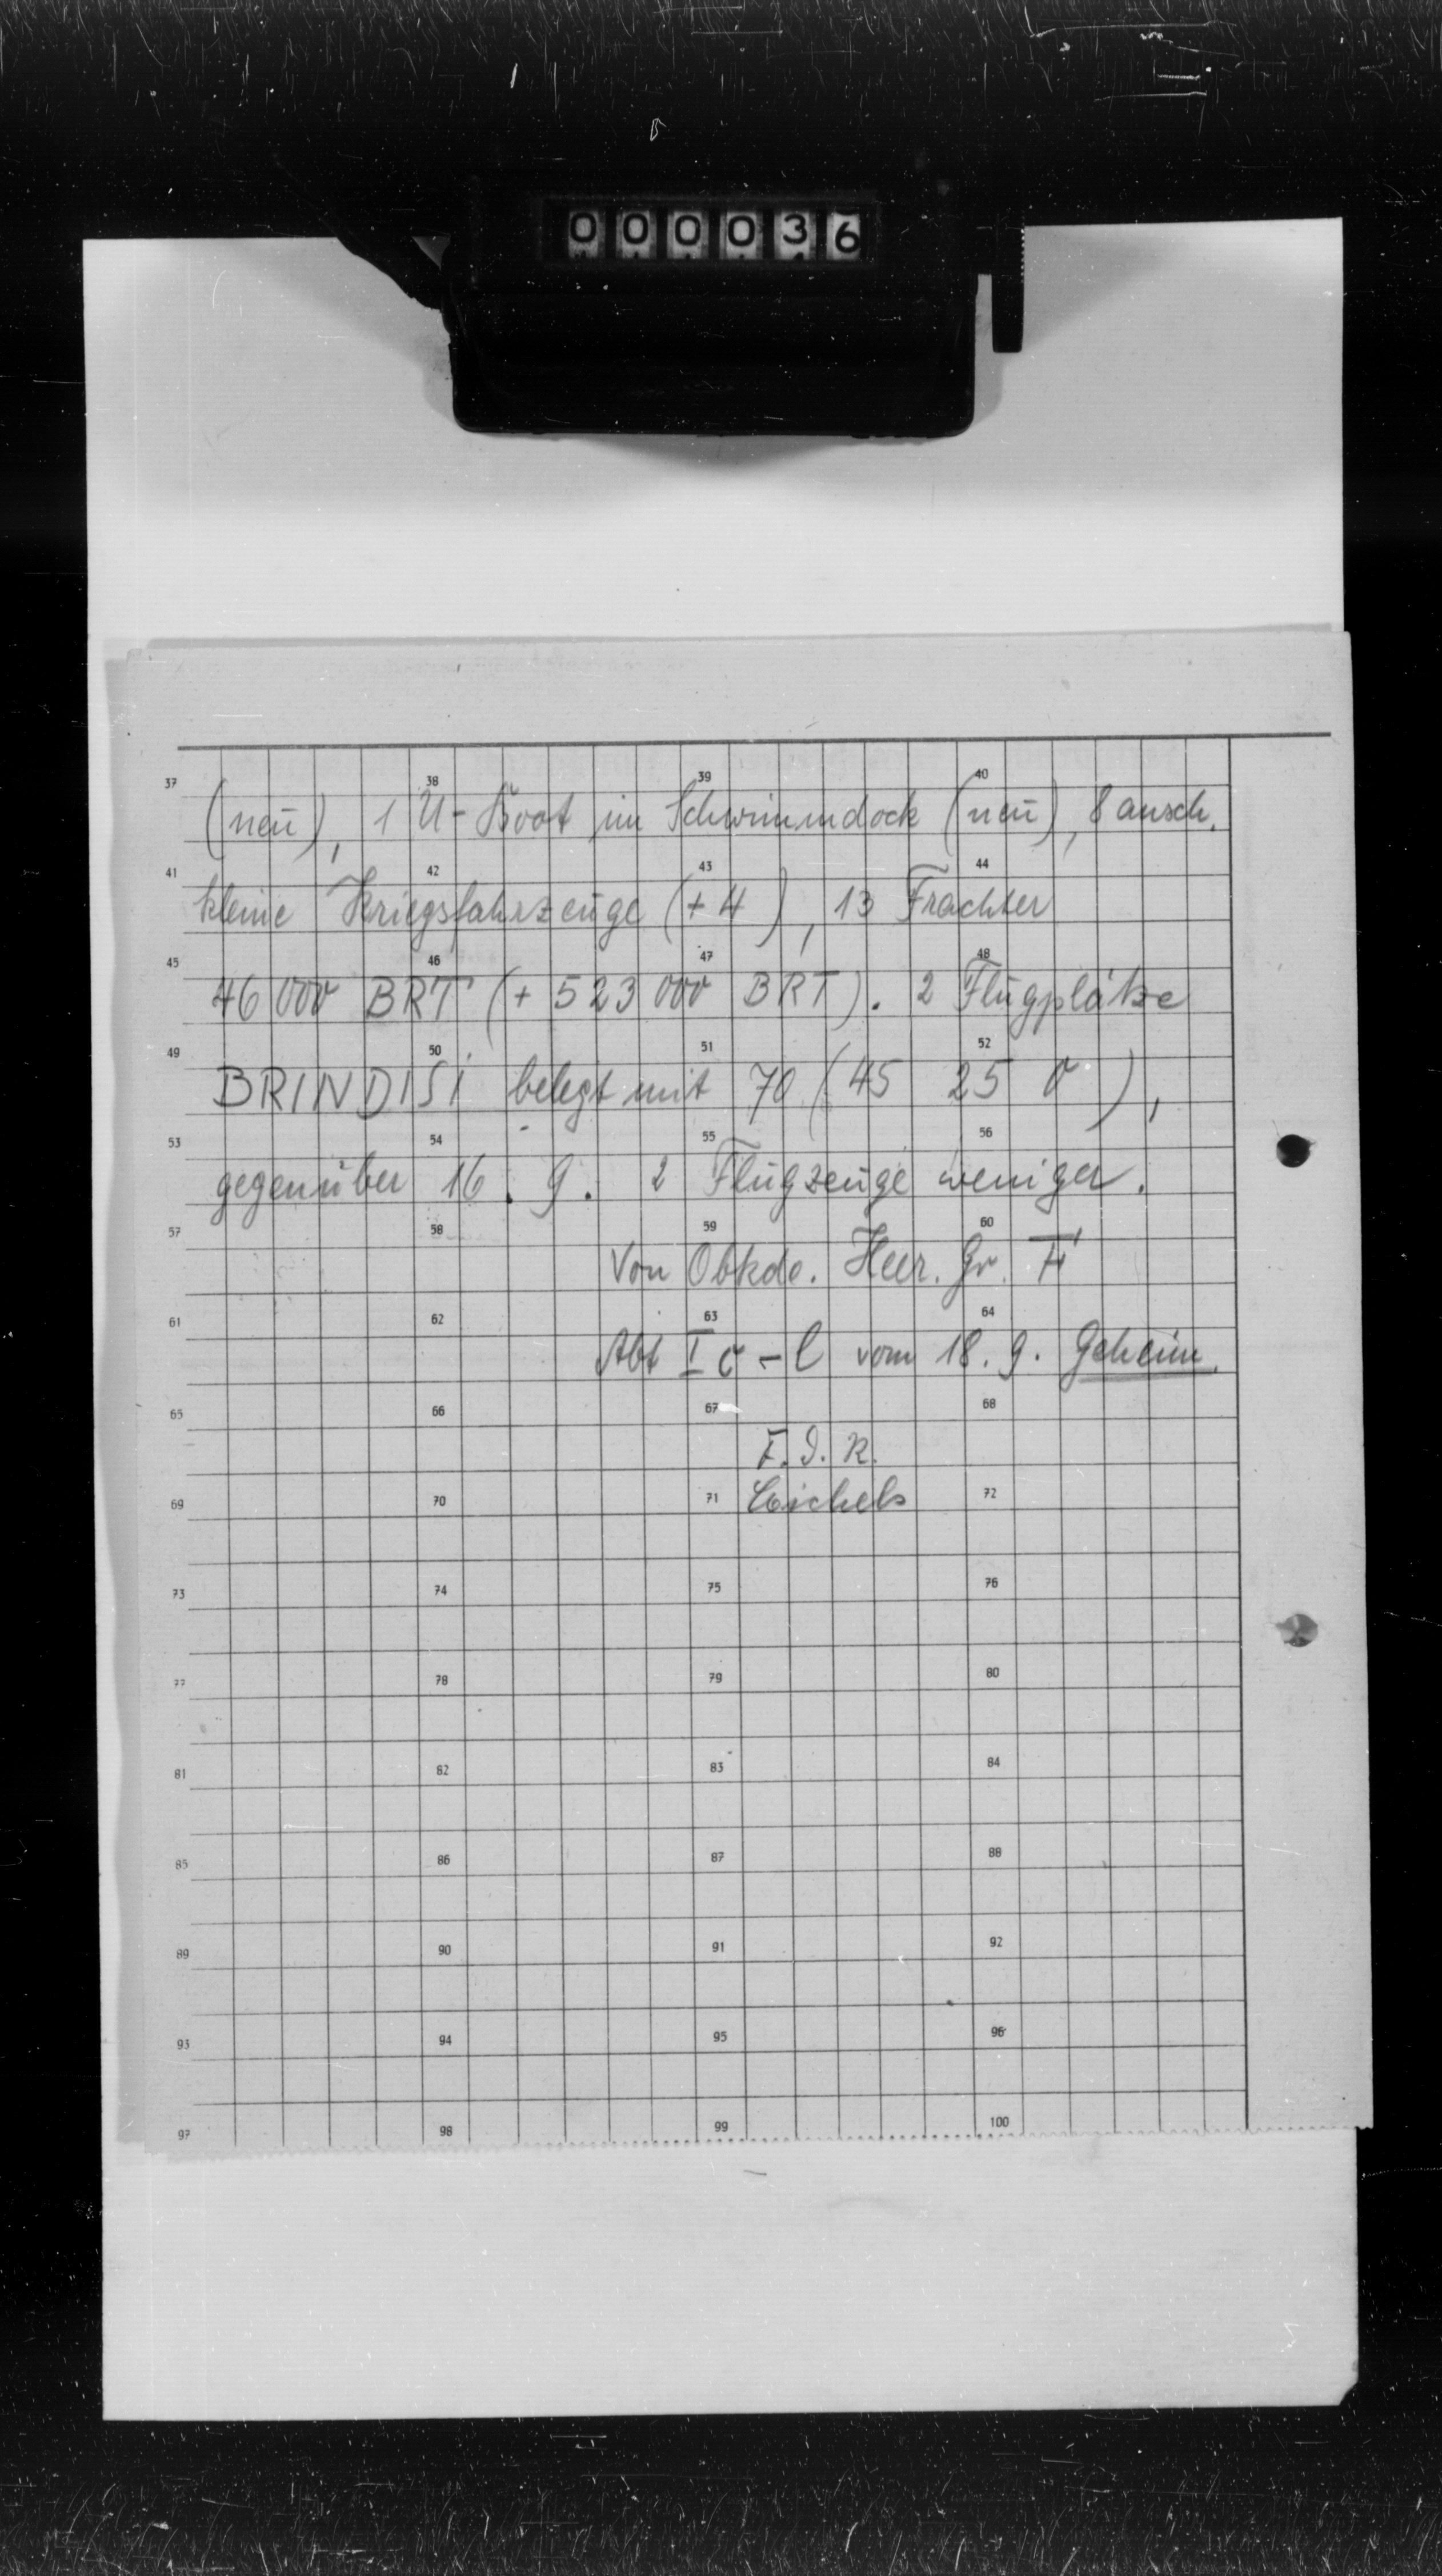 000036
37 38 39 40
(neu), 1 U-Boot im Schwimmdock (neu), 8 ansch.
41 42 43 44
kleine Kriegsfahrzeuge (+4), 13 Frachter
45 46 47 48
46 000 BRT (+ 523 000 BRT). 2 Flugplätze
49 50 51 52
BRINDISI belegt mit 70 (45 25 0),
53 54 55 56
gegenüber 16. 9. 2 Flugzeuge weniger.
57 58 59 60
Von Obkdo. Heer. Gr. F
61 62 63 64
Abt I c - l vom 18. 9. Geheim.
65 66 67 68
F. d. R.
69 70 71 72
73 74 75 76
77 78 79 80
81 82 83 84
85 86 87 88
89 90 91 92
93 94 95 96
97 98 99 100